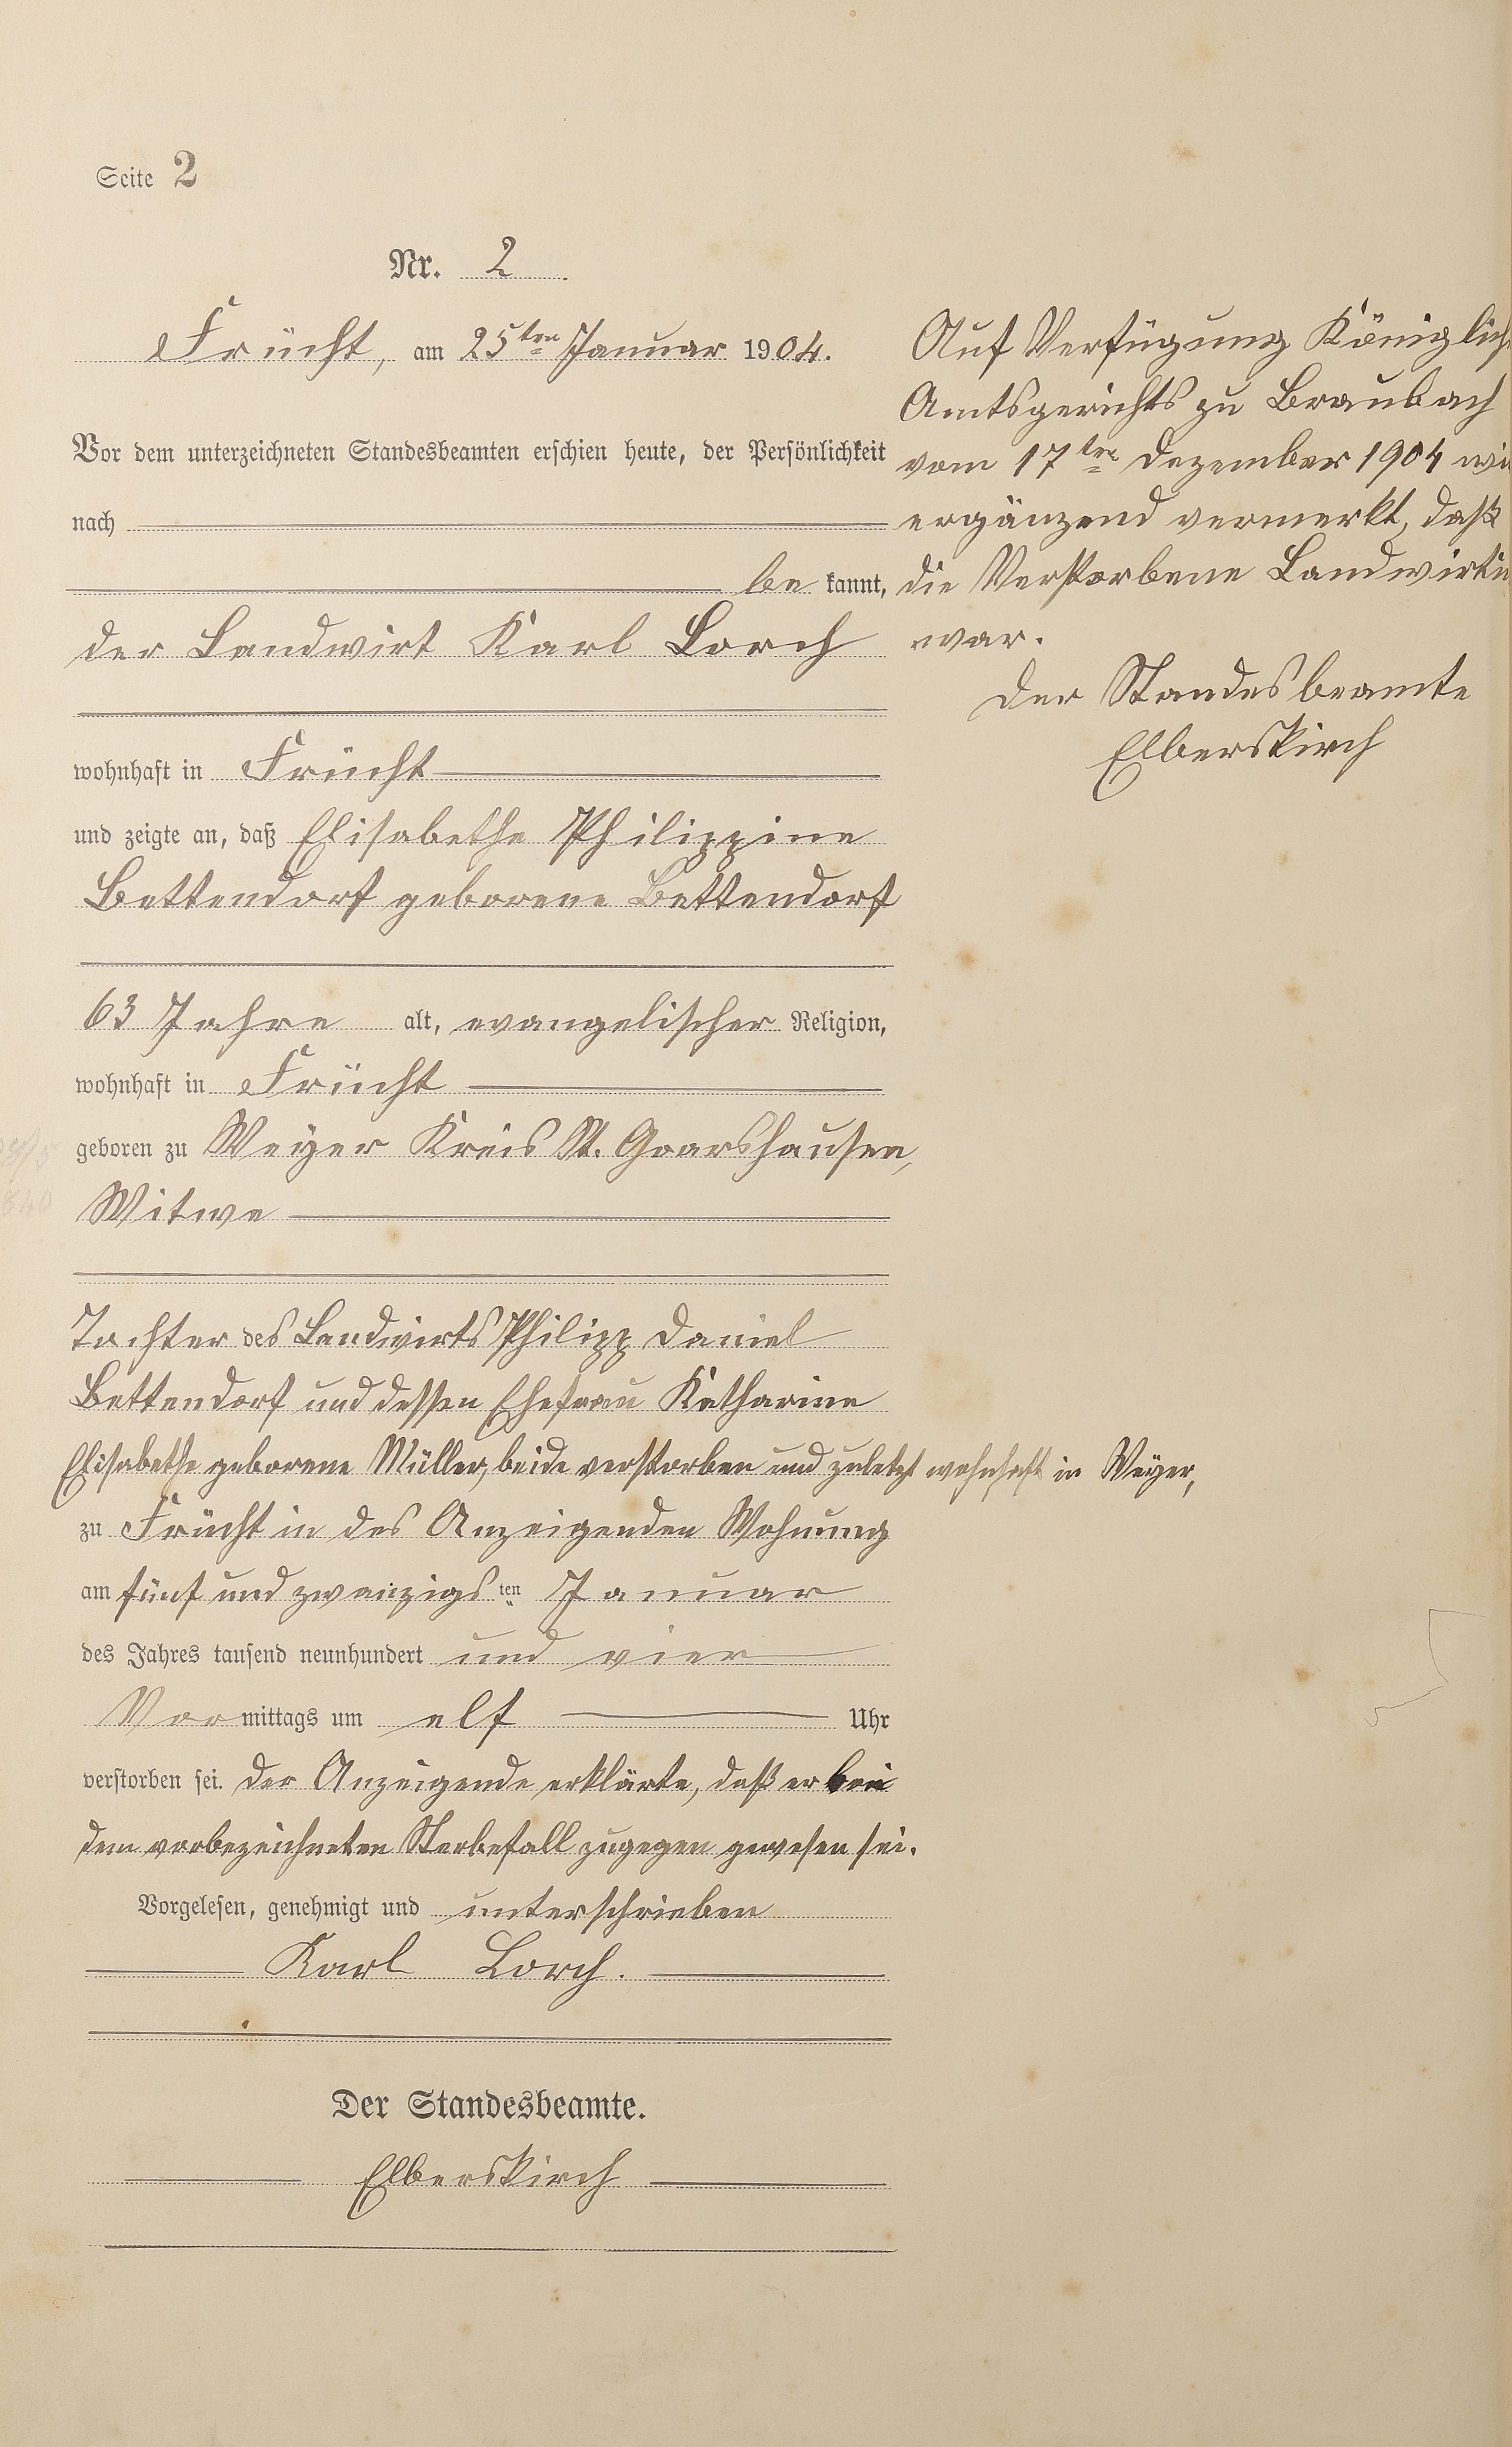 Seite 2
Nr. 2.
Frücht, am 25ten Januar 1904.
Vor dem unterzeichneten Standesbeamten erschien heute, der Persönlichkeit
nach
be kannt,
der Landwirt Karl Lorch
wohnhaft in Frücht
und zeigte an, daß Elisabethe Philippine
Bettendorf geborene Bettendorf
63 Jahre alt, evangelischer Religion,
wohnhaft in Frücht
geboren zu Weyer Kreis St. Goarshausen,
Witwe
Tochter des Landwirts Philipp Daniel
Bettendorf und dessen Ehefrau Katharine
Elisabethe geborene Müller, beide verstorben und zuletzt wohnhaft in Weyer,
zu Frücht in des Anzeigenden Wohnung
am fünf und zwanzigsten Januar
des Jahres tausend neunhundert und vier
Vormittags um elf Uhr
verstorben sei. Der Anzeigende erklärte, daß er bei
dem vorbezeichneten Sterbefall zugegen gewesen sei.
Vorgelesen, genehmigt und unterschrieben
Karl Lorch.
Der Standesbeamte.
Elberskirch
Auf Verfügung Königlich
Amtsgerichts zu Braubach
vom 17ten Dezember 1904 wi
ergänzend vermerkt, daß
die Verstorbene Landwirtin
war.
Der Standesbeamte
Elberskirch